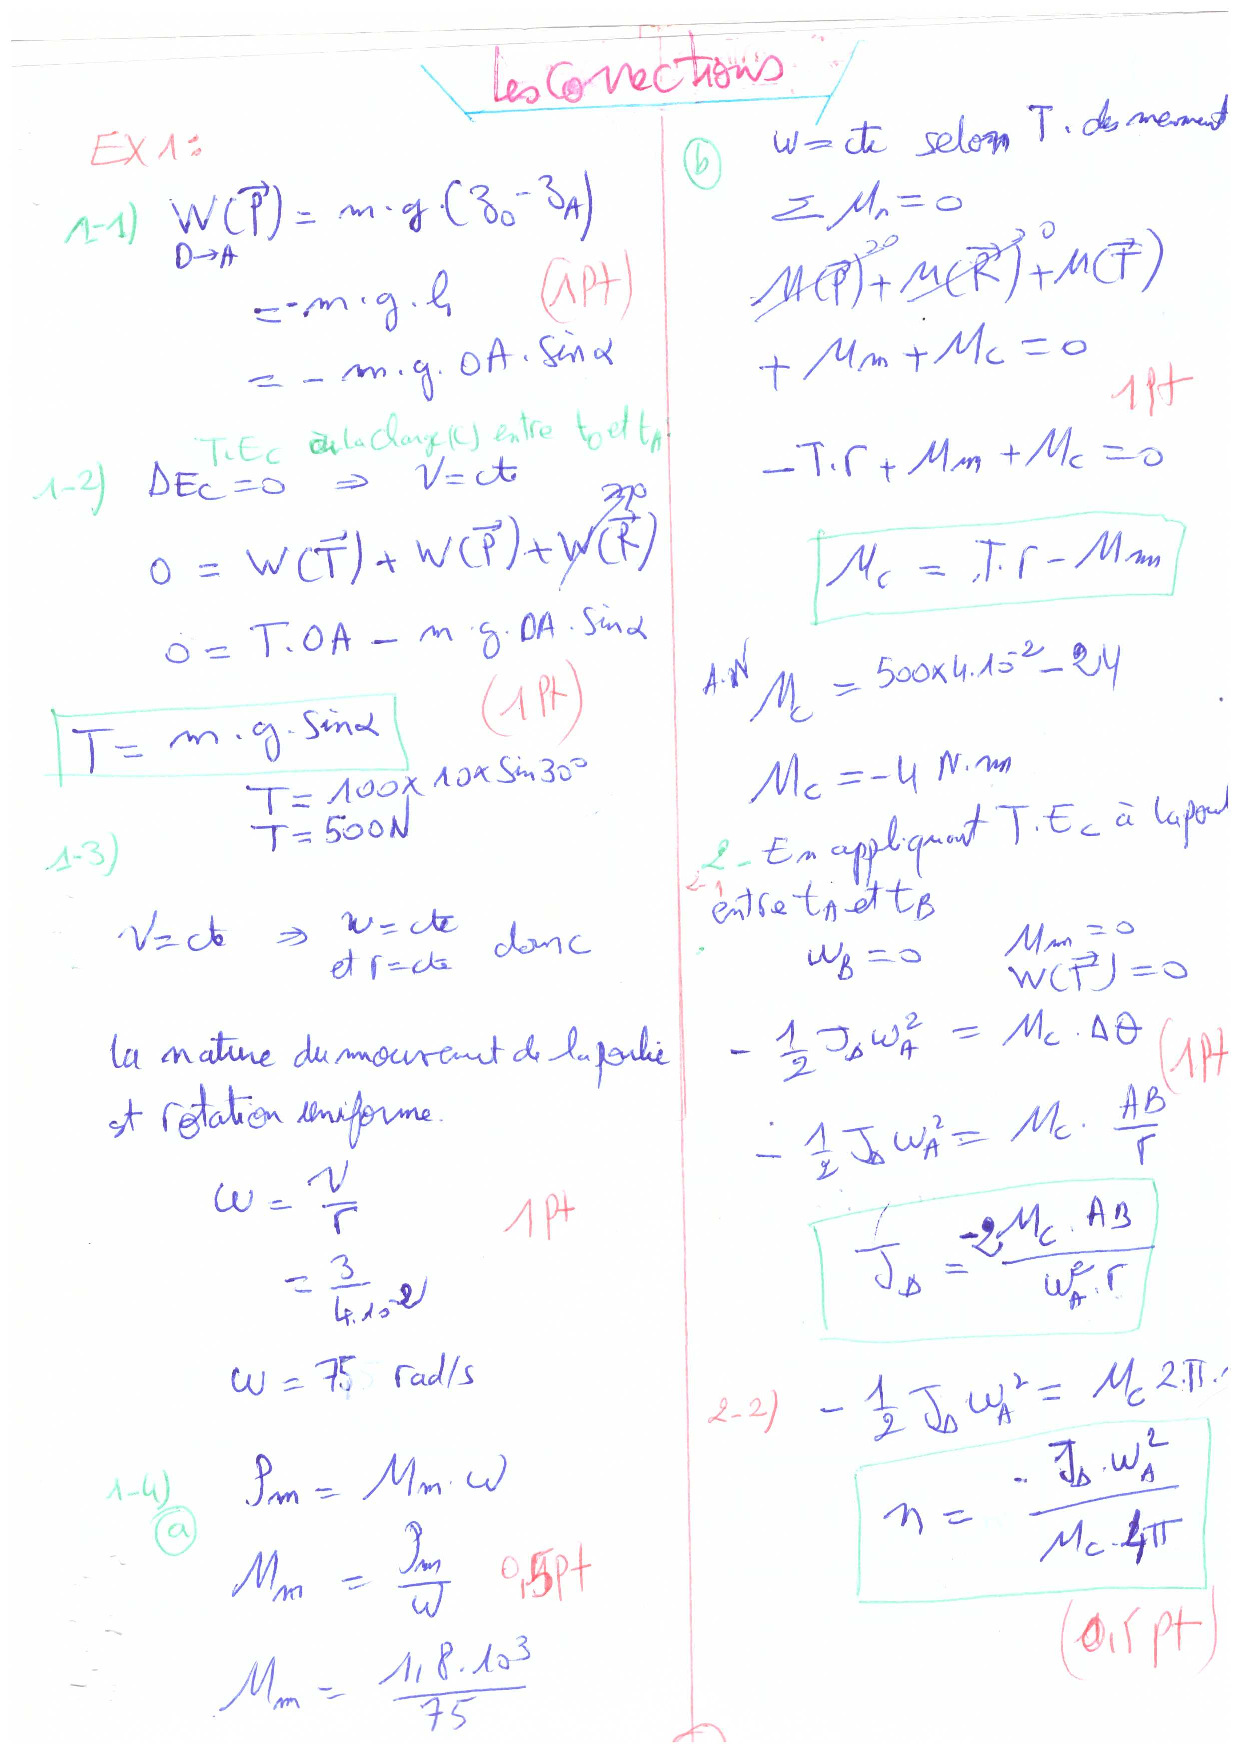 Les Corrections
EX 1:
1-1) W(P⃗) = m.g.(z₀ - z_A)
D→A
= -m.g.h (1pt)
= - m.g. OA. Sinα
T.Ec à la charge(C) entre t₀ et t_A
1-2) ΔEc = 0 ⇒ V = cte
0 = W(T⃗) + W(P⃗) + W(R⃗)
0 = T.OA - m.g.OA.Sinα
(1pt)
T = m.g.Sinα
T = 100x10xSin30°
T = 500N
1-3)
V = cte ⇒ w = cte donc
et r = cte
la nature du mouvement de la poulie
est rotation uniforme.
ω = V/r 1pt
= 3/4.10⁻²
ω = 75 rad/s
1-4) Pm = Mm.ω
(a)
Mm = Pm/ω 0,5pt
Mm = 1,8.10³/75
(b) w = cte selon T. des moment
Σ M_n = 0
M(P⃗) + M(R⃗) + M(T⃗)
+ Mm + Mc = 0
1pt
-T.r + Mm + Mc = 0
Mc = T.r - Mm
A.N Mc = 500x4.10⁻² - 24
Mc = -4 N.m
2- En appliquant T.Ec à la poul
2-1 entre t_A et t_B
w_B = 0 Mm = 0
W(T⃗) = 0
- 1/2 J_Δ ω_A² = Mc . Δθ (1pt
- 1/2 J_Δ ω_A² = Mc. AB/r
J_Δ = -2 Mc . AB / ω_A² . r
2-2) - 1/2 J_Δ ω_A² = Mc 2.π.
n = - J_Δ . ω_A² / Mc . 4π
(0,5pt)